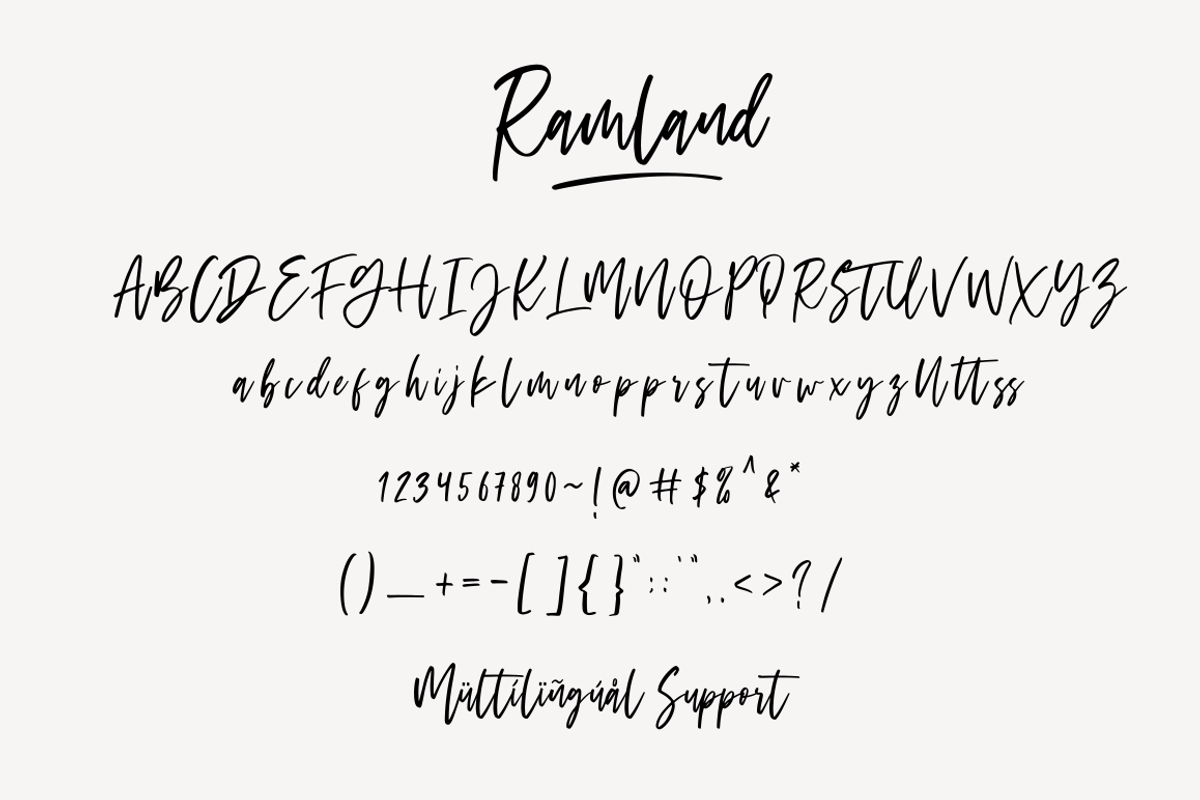 Ramland
ABCDEFGHIJKLMNOPQRSTUVWXYZ
abcdefghijklmnopprstuvwxyzllttss
1234567890~!@#$%^&*
()_+=-[]{}":;'",.<>?/
Mültílïñgúål Support